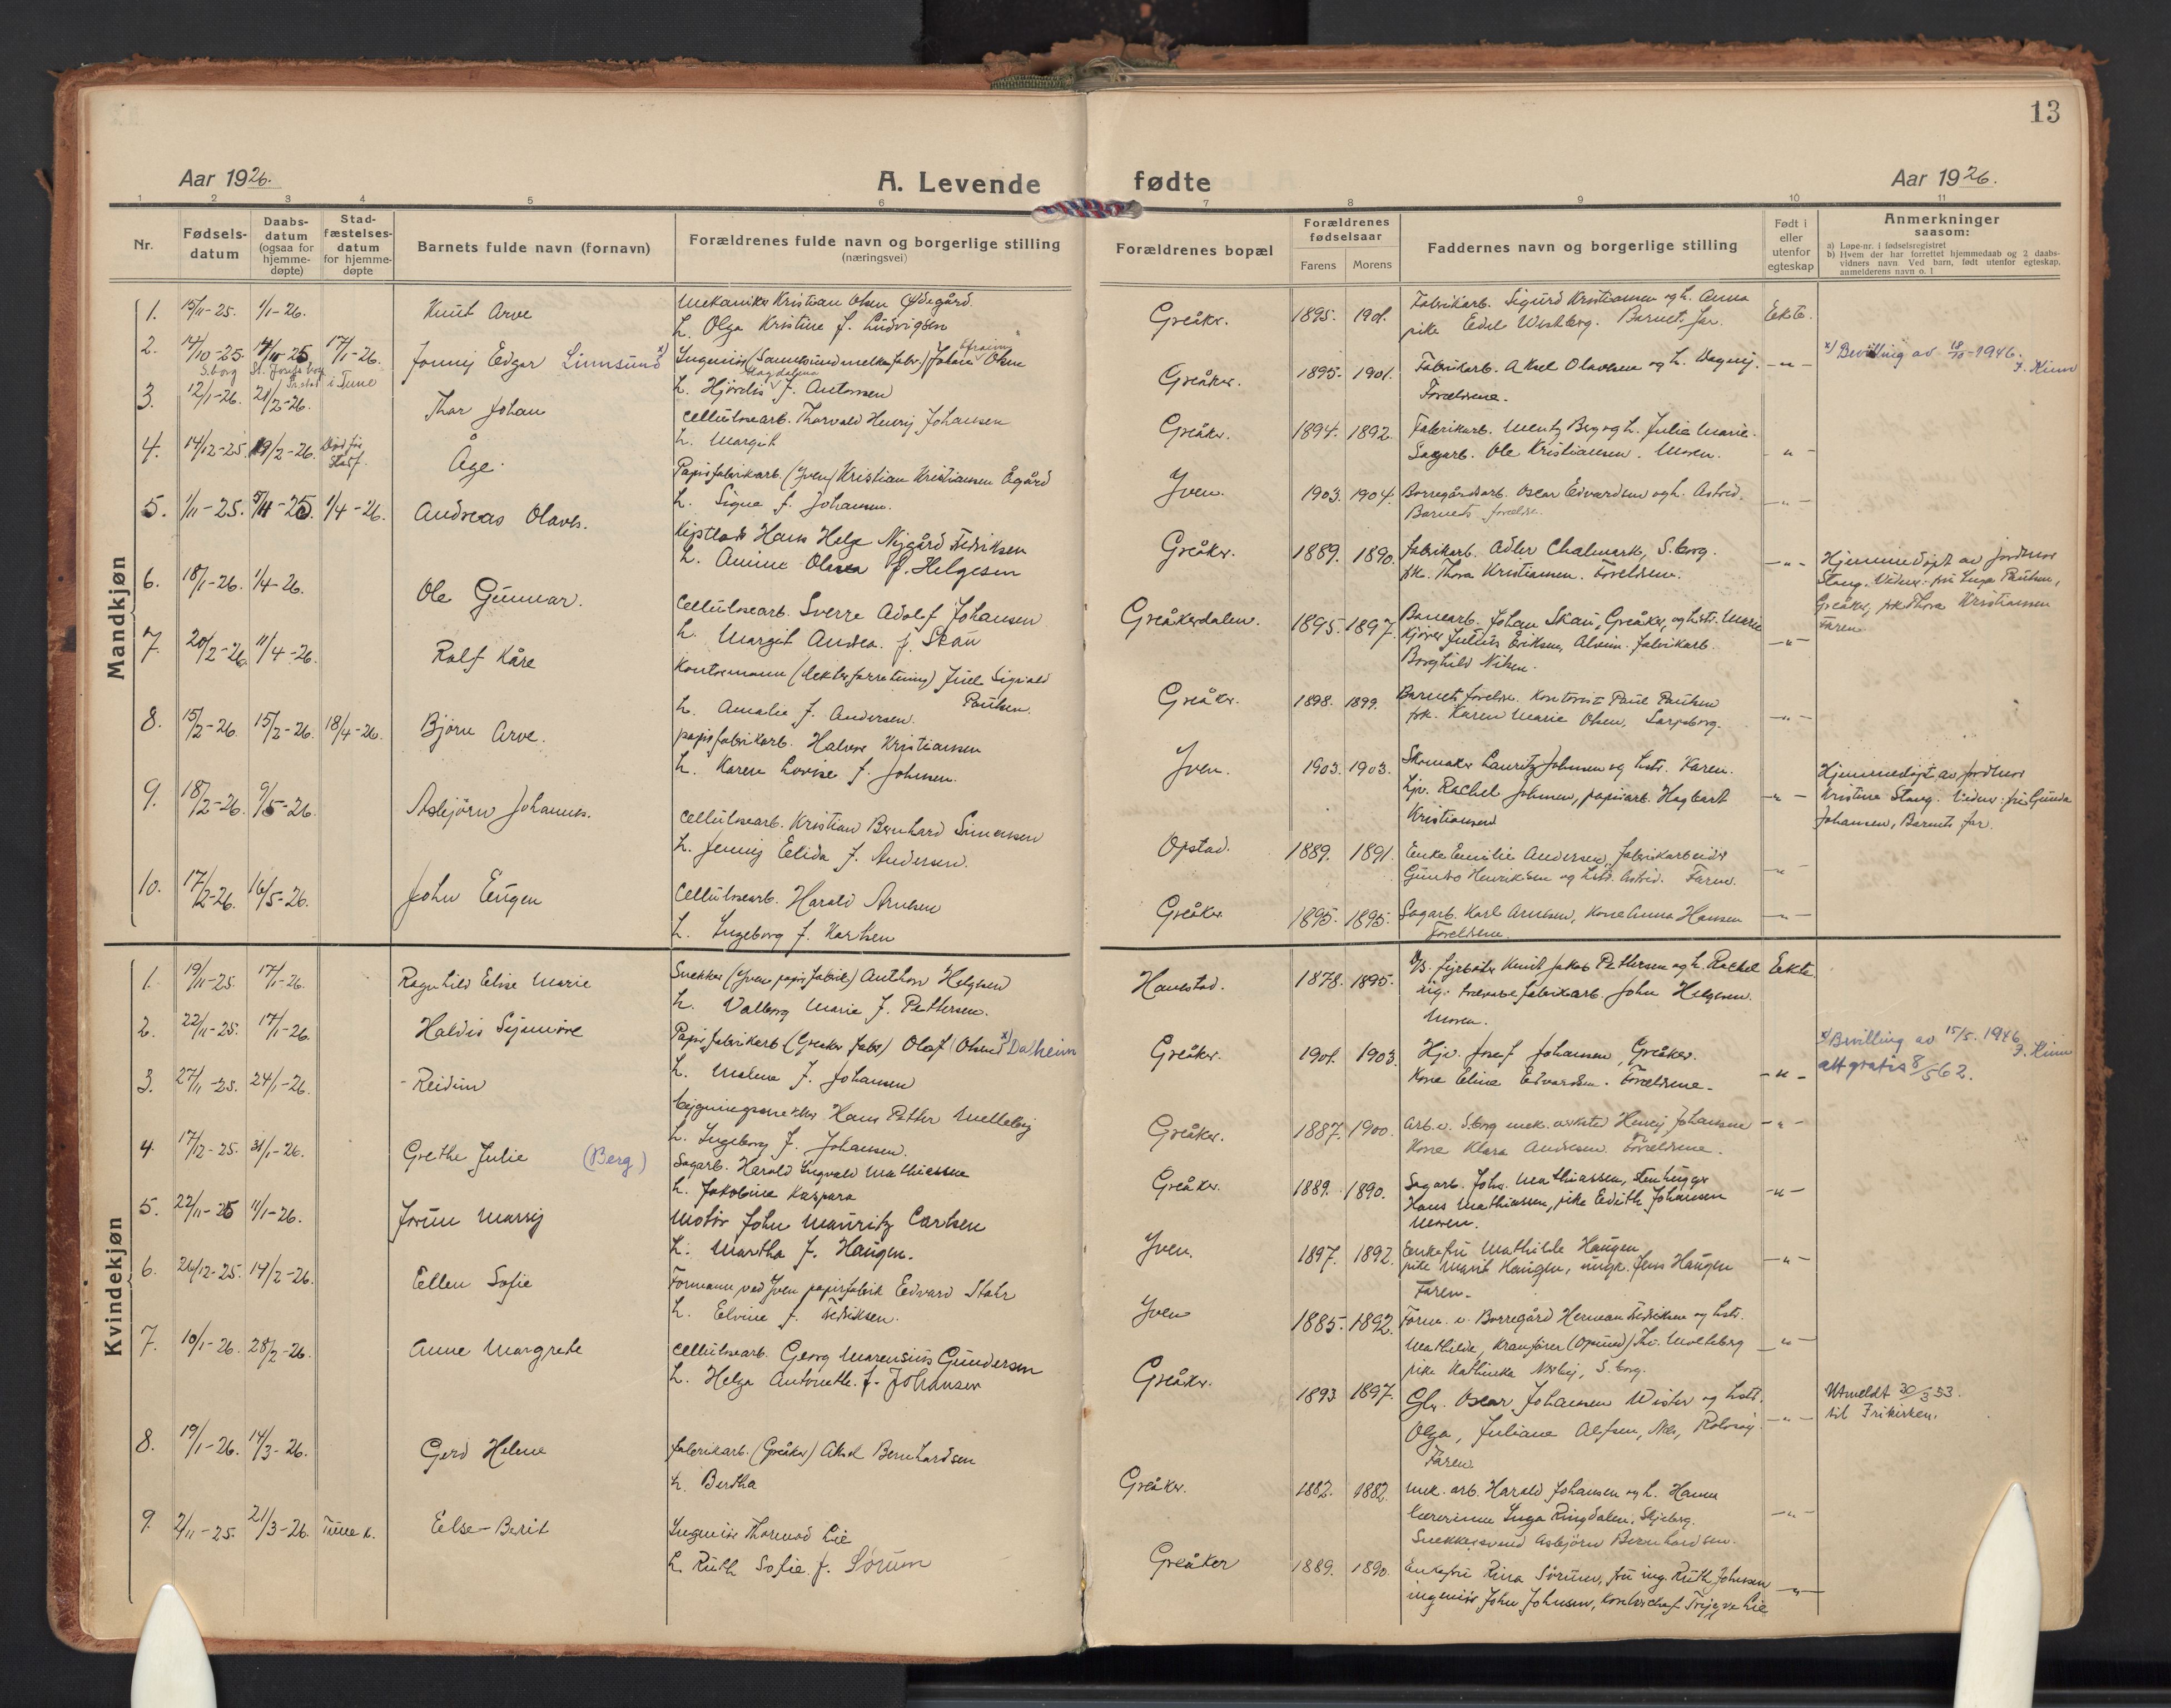 13
Aar 1926.
A. Levende fødte
Aar 1926.
1 2 3 4 5 6 7 8 9 10 11
Nr.
Fødsels-
datum
Daabs-
datum
(ogsaa for
hjemme-
døpte)
Stad-
fæstelses-
datum
for hjemme-
døpte
Barnets fulde navn (fornavn)
Forældrenes fulde navn og borgerlige stilling
(næringsvei)
Forældrenes bopæl
Forældrenes
fødselsaar
Farens Morens
Faddernes navn og borgerlige stilling
Født i
eller
utenfor
egteskap
Anmerkninger
saasom:
a) Løpe-nr. i fødselsregistret
b) Hvem der har forrettet hjemmedaab og 2 daabs-
vidners navn. Ved barn, født utenfor egteskap,
anmelderens navn o. l
Mandkjøn
1. 15/11-25. 1/1-26. Knut Arve
Mekaniker Kristian Olsen Ødegård.
h. Olga Kristine f. Ludvigsen
Greåkr. 1895. 1901.
Fabrikarb. Sigurd Kristiansen og h. Anna
pike Edel Westberg. Barnets far.
Ekte.
2. 14/10-25. 14/10-25. 17/1-26. Jonny Edgar Linnsund x)
S.borg i Tune
Ingeniør Johan Efraim Olsen
h. Hjørdis Magdalena f. Antonsen
Greåker. 1895. 1901.
Fabrikarb. Aksel Olavesen og h. Dagny.
Forældrene.
-"-
x) Bevilling av 18/10-1946.
F. Kinn
3. 12/1-26. 21/2-26. Thor Johan
Cellulosearb. Thorvald Henry Johansen
h. Margit
Greåkr. 1894. 1892.
Fabrikarb. Mentz Berg og h. Julie Marie.
Sagarb. Ole Kristiansen. Moren.
-"-
4. 14/12-25. 19/2-26. Død før Stadf. Åge.
Papirfabrikarb. (Yven) Kristian Kristiansen Ågård
h. Signe f. Johansen.
Yven. 1903. 1904.
Borregårdsarb. Oscar Edvardsen og h. Astrid.
Barnets forældre.
-"-
5. 1/11-25. 5/11-25. 1/4-26. Andreas Olavs.
Hans Helge Nygård Fredriksen
h. Amine Olava f. Helgesen
Greåkr. 1889. 1890.
Fabrikarb. Adler Chalmark, S.borg.
frk. Thora Kristiansen. Foreldrene.
-"-
Hjemmedøpt av jordmor
Stang. Vidner: fru Inga Paulsen,
Greåker, frk Thora Kristiansen
Faren
6. 18/1-26. 1/4-26. Ole Gunnar.
Cellulosearb. Sverre Adolf Johansen
h. Margit Andrea. f. Skau
Greåkerdalen. 1895. 1897.
Banearb. Johan Skau, Greåker, og hstr. Marie
Kjører Julius Eriksen, Alvim. fabrikarb.
Borghild Nilsen.
-"-
7. 20/2-26 11/4-26. Rolf Kåre
Kontormann Juel Sigvald
Paulsen.
h. Amalie f. Andersen.
Greåkr. 1898. 1899.
Barnets foreldre. Kontorist Paul Paulsen
frk. Karen Marie Olsen, Sarpsborg.
-"-
8. 15/2-26. 15/2-26. 18/4-26. Bjørn Arve.
papirfabrikarb. Halvor Kristiansen
h. Karen Lovise f. Johnsen.
Yven. 1903. 1903.
Skomaker Lauritz Johnsen og hstr. Karen.
hjv. Rachel Johnsen, papirarb. Hagbart
Kristiansen
-"-
Hjemmedøpt av jordmor
Kristine Stang. Vidner: fru Gunda
Johansen, Barnets far.
9. 18/2-26. 9/5-26. Asbjørn Johannes.
Cellulosearb. Kristian Bernhard Simensen
h. Jenny Elida f. Andersen.
Opstad. 1889. 1891.
Enke Emilie Andersen, fabrikarbeider
Gunvo Henriksen og hstr. Astrid. Faren.
-"-
10. 17/2-26. 16/5-26. John Eugen
Cellulosearb. Harald Arnesen
h. Ingeborg f. Karlsen
Greåker 1895. 1895.
Sagarb. Karl Arnesen, Kone Anna Hansen
Foreldrene.
-"-
Kvindekjøn
1. 19/11-25. 17/1-26. Ragnhild Elise Marie
Snekker (Yven papirfabrik) Anthon Helgesen
h. Valborg Marie f. Pettersen.
Hannestad. 1878. 1895.
Fyrbøter Knut Jakob Pettersen og h. Rachel
fabrikarb. John Helgesen.
Moren.
Ekte
2. 22/11-25. 17/1-26. Haldis Synnøve
Papirfabrikarb (Greaker fabr) Olaf (Olsen) x) Dalheim
h. Malena f. Johansen
Greåker. 1901. 1903.
Hjv. Josef Johansen, Greåker.
Kone Elina Edvardsen. Forældrene.
-"-
x) Bevilling av 15/5. 1946
F. Kinn
att gratis 8/5 62.
3. 27/11-25. 24/1-26. Reidun
bygningssnekker Hans Petter Melleby
h. Ingeborg f. Johansen.
Greåker. 1887. 1900.
Arb. v. S.borg mek. verksted Henry Johansen
Kone Klara Andresen. Forældrene.
-"-
4. 17/12-25. 31/1-26. Grethe Julie (Berg)
Sagarb. Harald Ingvald Mathiassen
h. Jakobine Kaspara
Greåkr. 1889. 1890.
Sagarb. Johs. Mathiassen, Stenhugger
Hans Mathiassen, pike Edith Johansen
Moren.
-"-
5. 22/11-25 11/1-26. Jorun Marry
Motør John Mauritz Carlsen
h. Martha f. Haugen.
Yven. 1897. 1892.
Enkefru Mathilde Haugen
pike Marit Haugen, ungk. Jens Haugen
Faren.
-"-
6. 26/12-25. 14/2-26. Ellen Sofie
Formann ved Yven papirfabrik Edvard Stahr
h. Elvine f. Fredriksen.
Yven 1885. 1892.
Form. v. Borregård Herman Fredriksen og hstr.
Mathilde, Kranfører (Opsund) Th. Molteberg
pike Kathinka Nærby, S.borg.
-"-
7. 10/1-26. 28/2-26. Anne Margrete
Cellulosearb. Georg Marensius Gundersen
h. Helga Antonette. f. Johansen
Greåkr. 1893 1897.
Oscar Johansen Wister og hstr.
Olga, Juliane Alfsen, Rolvsøy.
Faren.
-"-
Utmeldt 30/3 53.
til Frikirken.
8. 19/1-26. 14/3-26. Gerd Helene
fabrikarb. (Greåker) Aksel Bernhardsen
h. Bertha
Greåkr. 1882. 1882.
Mek. arb. Harald Johansen og h. Hanna
Lærerinne Inga Ringdalen, Skjeberg.
Snekkersvend Asbjørn Bernhardsen.
-"-
9. 2/11-25. 21/3-26. Tune k. Else-Berit
Ingeniør Thormod Lie
h. Ruth Sofie f. Sørum
Greåker 1889. 1890.
Enkefru Rina Sørum, fru ing. Ruth Johnsen
ingeniør John Johnsen, Kontorchef Trygve Lie
-"-